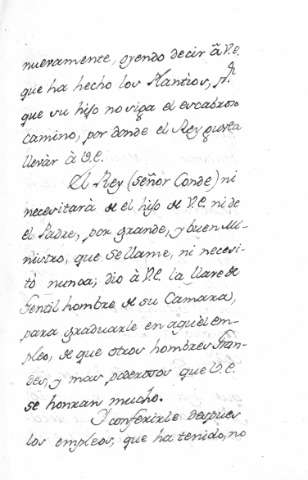 nuevamente, oyendo decir â V.E.
que ha hecho los Plantíos, pª.
que su hijo no siga el escabroso
camino, por donde el Rey gusta
llevar à V.E.
El Rey (señor Conde) ni
necesitarà de el hijo de V.E. ni de
el Padre, por grande, y buen Mi-
nistro, que se llame, ni necesi-
tò nunca; dio à V.E. la llave de
Gentil hombre de su Camara,
para graduarle en aquel em-
pleo, de que otros hombres Gran-
des, y mas poderosos que V.E.
se honran mucho.
Y conferirle despues
los empleos, que ha tenido, no